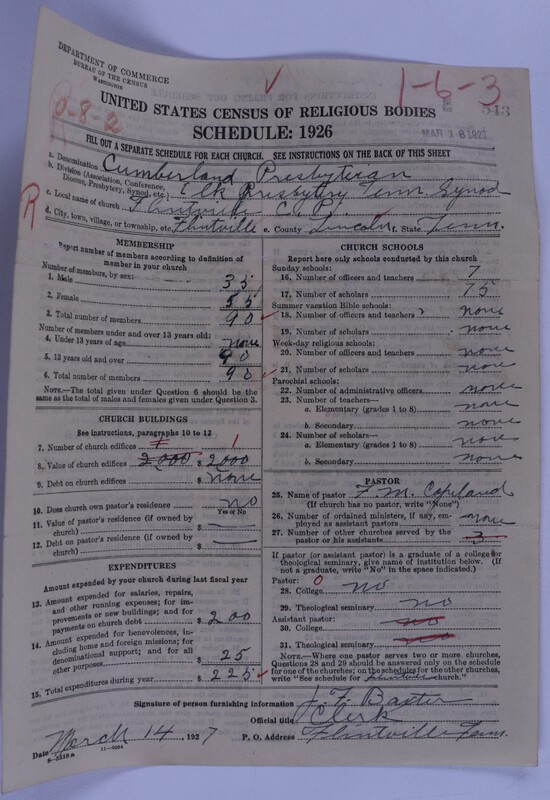 DEPARTMENT OF COMMERCE
BUREAU OF THE CENSUS
WASHINGTON
1-6-3
0-8-2
543
MAR 16 1927
UNITED STATES CENSUS OF RELIGIOUS BODIES
SCHEDULE: 1926
FILL OUT A SEPARATE SCHEDULE FOR EACH CHURCH. SEE INSTRUCTIONS ON THE BACK OF THIS SHEET
a. Denomination Cumberland Presbyterian
b. Division (Association, Conference, Diocese, Presbytery, Synod, etc.) Elk Presbytery Tenn Synod
R
c. Local name of church Flintville C. P.
d. City, town, village, or township, etc. Flintville e. County Lincoln f. State Tenn.
MEMBERSHIP
Report number of members according to definition of
member in your church
Number of members, by sex:
1. Male 35
2. Female 55
3. Total number of members 90
Number of members under and over 13 years old:
4. Under 13 years of age none
5. 13 years old and over 90
6. Total number of members 90
NOTE.—The total given under Question 6 should be the
same as the total of males and females given under Question 3.
CHURCH BUILDINGS
See instructions, paragraphs 10 to 12
7. Number of church edifices 1
8. Value of church edifices 2000 $ 2000
9. Debt on church edifices $ none
10. Does church own pastor's residence no
Yes or No
11. Value of pastor's residence (if owned by
church) $
12. Debt on pastor's residence (if owned by
church) $
EXPENDITURES
Amount expended by your church during last fiscal year
13. Amount expended for salaries, repairs,
and other running expenses; for im-
provements or new buildings; and for
payments on church debt $ 200
14. Amount expended for benevolences, in-
cluding home and foreign missions; for
denominational support; and for all
other purposes 25
15. Total expenditures during year $ 225
CHURCH SCHOOLS
Report here only schools conducted by this church
Sunday schools:
16. Number of officers and teachers 7
17. Number of scholars 75
Summer vacation Bible schools:
18. Number of officers and teachers none
19. Number of scholars none
Week-day religious schools:
20. Number of officers and teachers none
21. Number of scholars none
Parochial schools:
22. Number of administrative officers none
23. Number of teachers—
a. Elementary (grades 1 to 8) none
b. Secondary none
24. Number of scholars—
a. Elementary (grades 1 to 8) none
b. Secondary none
PASTOR
25. Name of pastor F. M. Copeland
(If church has no pastor, write "None")
26. Number of ordained ministers, if any, em-
ployed as assistant pastors none
27. Number of other churches served by the
pastor or his assistants 3
If pastor (or assistant pastor) is a graduate of a college or
theological seminary, give name of institution below. (If
not a graduate, write "No" in the space indicated.)
Pastor: 0
28. College no
29. Theological seminary no
Assistant pastor:
30. College no
31. Theological seminary
NOTE.—Where one pastor serves two or more churches,
Questions 28 and 29 should be answered only on the schedule
for one of the churches; on the schedules for the other churches,
write "See schedule for Flintville church."
Signature of person furnishing information J. F. Baxter
Official title Clerk
Date March 14, 1927 P. O. Address Flintville Tenn.
8-5518a 11-9094